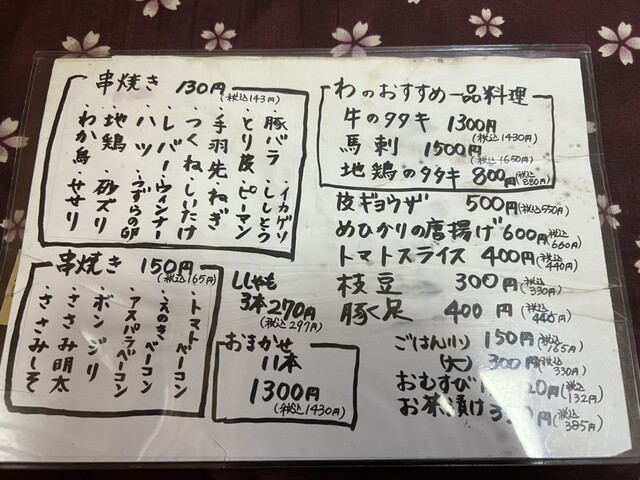 串焼き 130円
(税込143円)
・豚バラ
・イカゲソ
・ししとう
・とり皮・ピーマン
・手羽先・ねぎ
・つくね・しいたけ
・レバー・ウィンナー
・ハツ・うずらの卵
・地鶏・砂ズリ
・わか鳥・せせり
串焼き 150円
(税込165円)
・トマトベーコン
・えのきベーコン
・アスパラベーコン
・ボンジリ
・ささみ明太
・ささみしそ
ししゃも
3本270円
(税込297円)
おまかせ
11本
1300円
(税込1430円)
わのおすすめ一品料理
牛のタタキ 1300円
(税込1430円)
馬刺 1500円
(税込1650円)
地鶏のタタキ 800円(税込880円)
皮ギョウザ 500円(税込550円)
めひかりの唐揚げ 600円(税込660円)
トマトスライス 400円(税込440円)
枝豆 300円(税込330円)
豚足 400円(税込440円)
ごはん(小) 150円(税込165円)
(大) 300円(税込330円)
おむすび 20円(税込132円)
お茶漬け 3 円(税込385円)